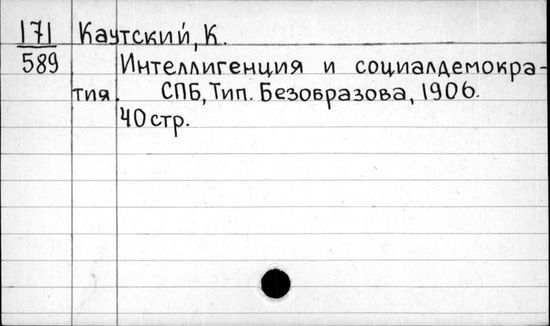 171 Каутский, К.
589 Интеллигенция и социалдемокра-
тия. СПБ, Тип. Безобразова, 1906.
40 стр.